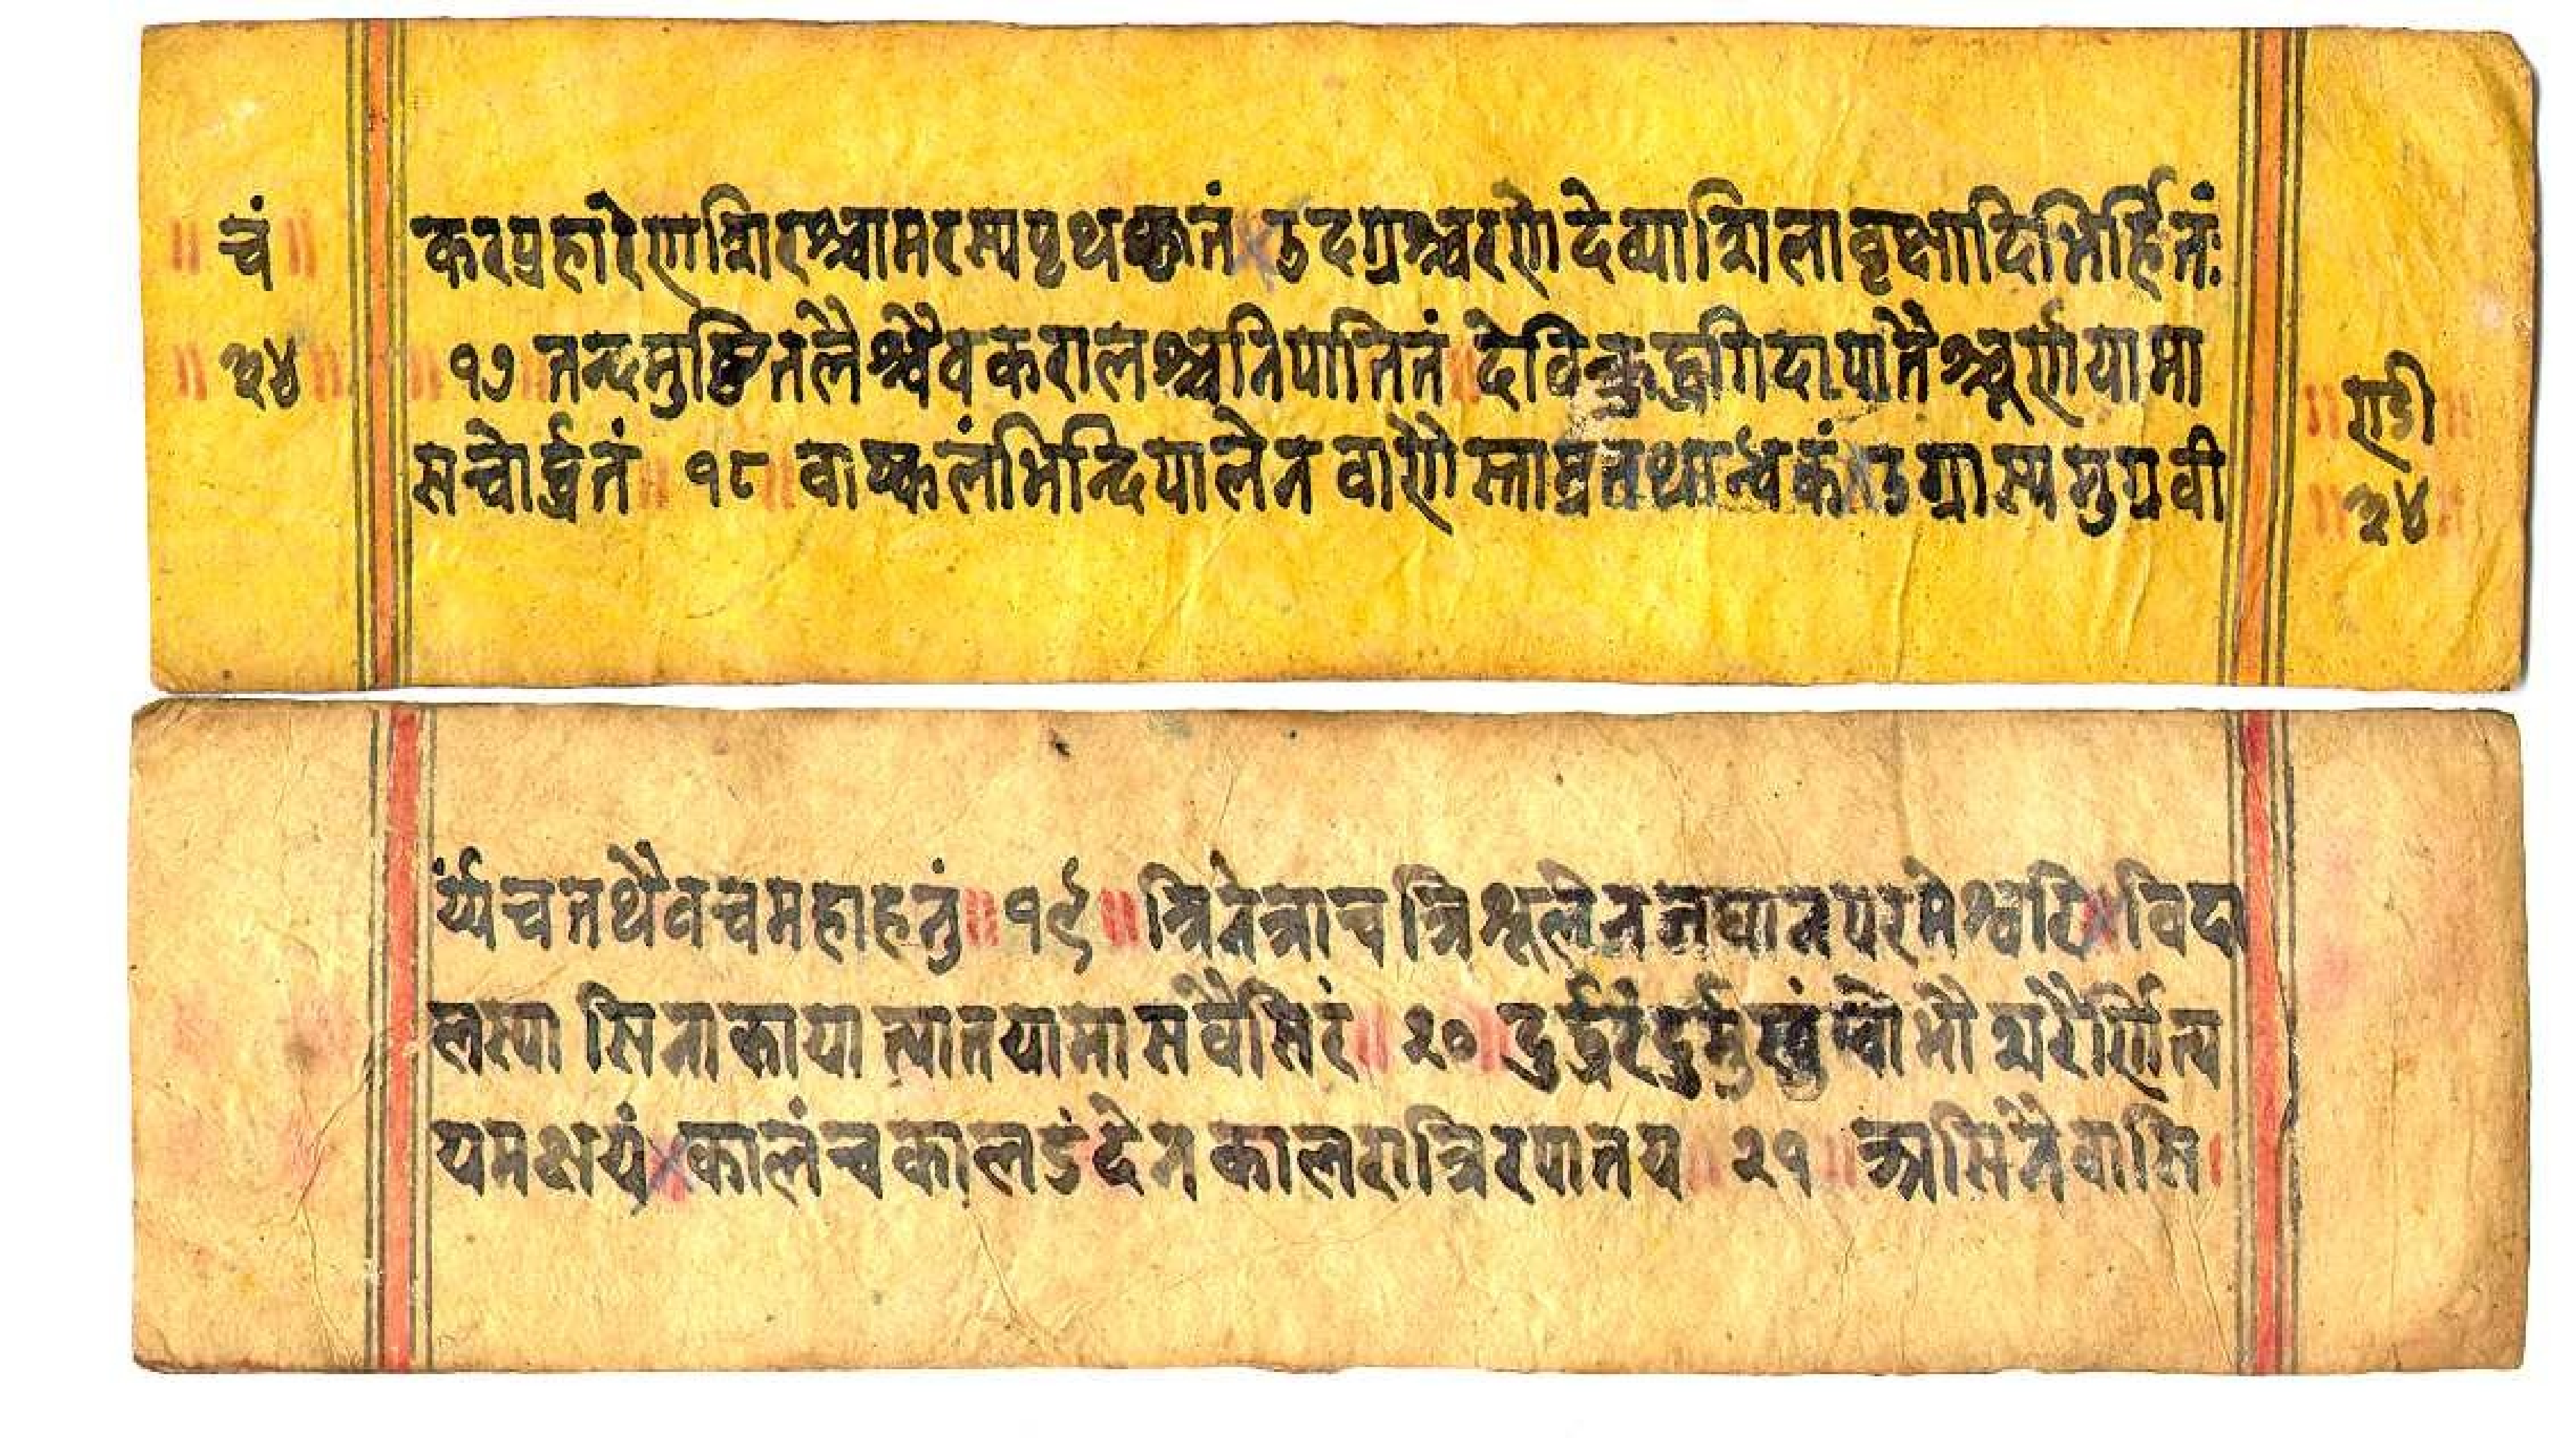 ॥ चं ॥
॥ २४ ॥
करप्रहारेणशिरश्चामरस्यपृथक्कृतं उदग्रश्चरणेदेव्याशिलावृक्षादिभिर्हतः
१७ तन्दमुष्टितलैश्चैवकरालश्चनिपातितं देविक्रुद्धागदापातैश्चूर्णयामा
सचोर्द्धतं ॥ १८ ॥ वाष्कलंभिन्दिपालेन वाणैस्ताम्रतथान्धकं उग्रास्यमुग्रवी
॥ ण्डी ॥
॥ २४ ॥
र्य्यंचतथैवचमहाहनुं ॥ १९ ॥ त्रिनेत्राच त्रिशूलेनजघानपरमेश्वरि विडा
लस्या सिनाकाया त्पातयामासवैसिरं ॥ २० ॥ दुर्द्धरंदुर्मुखंचोभौ शरैर्णित्य
यमक्षयं कालंचकालडंदेन कालरात्रिरपातय ॥ २१ ॥ असिनैवासि ।